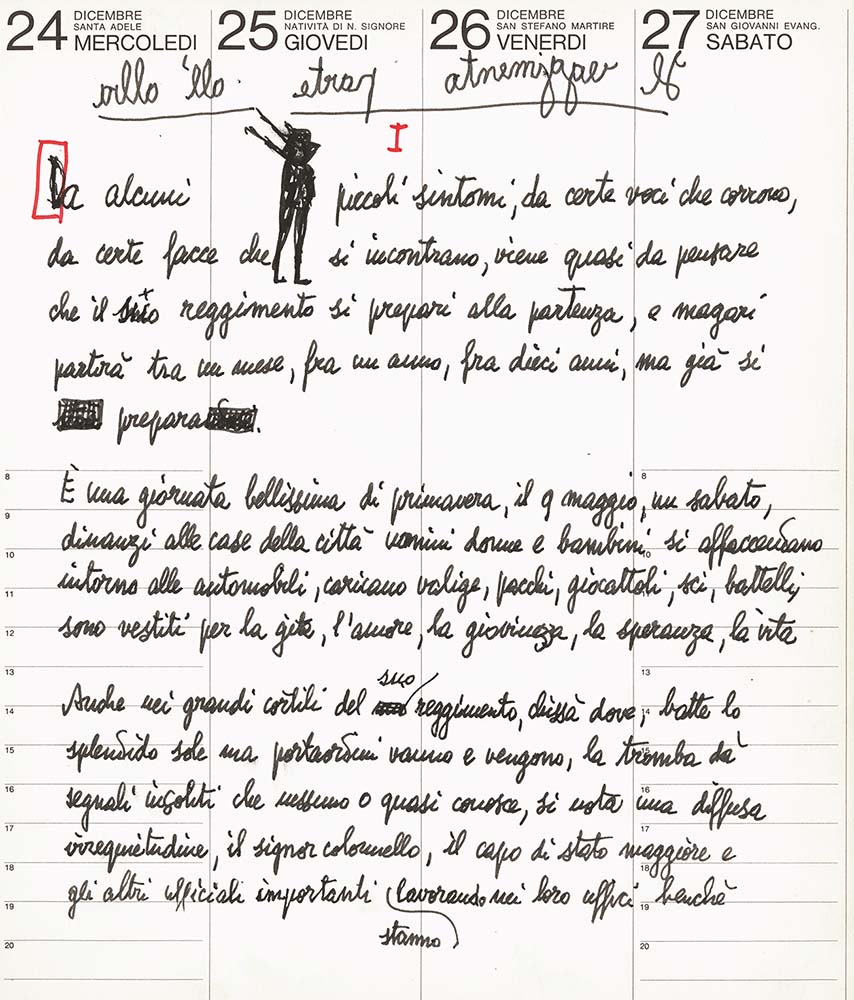 24 DICEMBRE SANTA ADELE MERCOLEDI
25 DICEMBRE NATIVITÀ DI N. SIGNORE GIOVEDI
26 DICEMBRE SAN STEFANO MARTIRE VENERDI
27 DICEMBRE SAN GIOVANNI EVANG. SABATO
abla 'lla etrap otnemigger lI
I
Da alcuni piccoli sintomi, da certe voci che corrono,
da certe facce che si incontrano, viene quasi da pensare
che il suo reggimento si prepari alla partenza, e magari
partirà tra un mese, fra un anno, fra dieci anni, ma già si
prepara.
È una giornata bellissima di primavera, il 9 maggio, un sabato,
dinanzi alle case della città uomini donne e bambini si affaccendano
intorno alle automobili, caricano valige, pacchi, giocattoli, sci, battelli,
sono vestiti per la gita, l'amore, la giovinezza, la speranza, la vita
suo
Anche nei grandi cortili del reggimento, chissà dove, batte lo
splendido sole ma portaordini vanno e vengono, la tromba dà
segnali insoliti che nessuno o quasi conosce, si nota una diffusa
irrequietudine, il signor colonnello, il capo di stato maggiore e
gli altri ufficiali importanti lavorando nei loro uffici benché
stanno
8 8
9 9
10 10
11 11
12 12
13 13
14 14
15 15
16 16
17 17
18 18
19 19
20 20